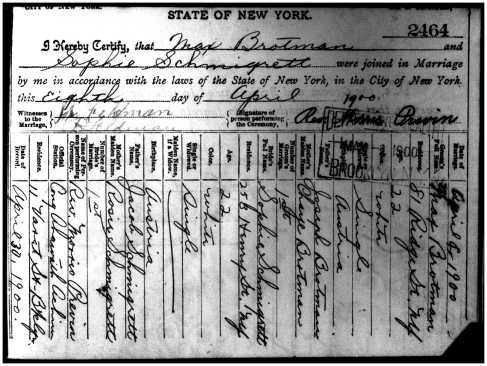 CITY OF NEW YORK.
STATE OF NEW YORK.
2464
I Hereby Certify, that Max Brotman and
Sophie Schmigrett were joined in Marriage
by me in accordance with the laws of the State of New York, in the City of New York.
this Eighth day of April 1900.
Witnesses to the Marriage,
Signature of person performing the Ceremony,
Rev Morris
Date of Marriage. April 8 1900
Groom's Full Name. Max Brotman
Residence. 81 Ridge St
Age. 22
Color. white
Single
Birthplace. Austria
Father's Name. Joseph Brotman
Mother's
Number of Groom's Marriage. 1st
Bride's Full Name. Sophie Schmigrett
Residence. 226 Henry St
Age. 22
Color. white
Single or Widowed. Single
Maiden Name, if a Widow.
Birthplace. Austria
Father's Name. Jacob Schmigrett
Mother's Maiden Name. Rosie
Number of Bride's Marriage. 1st
Name of Person performing Ceremony. Rev Morris
Official Station.
Residence.
Date of Record. April 30 1900.